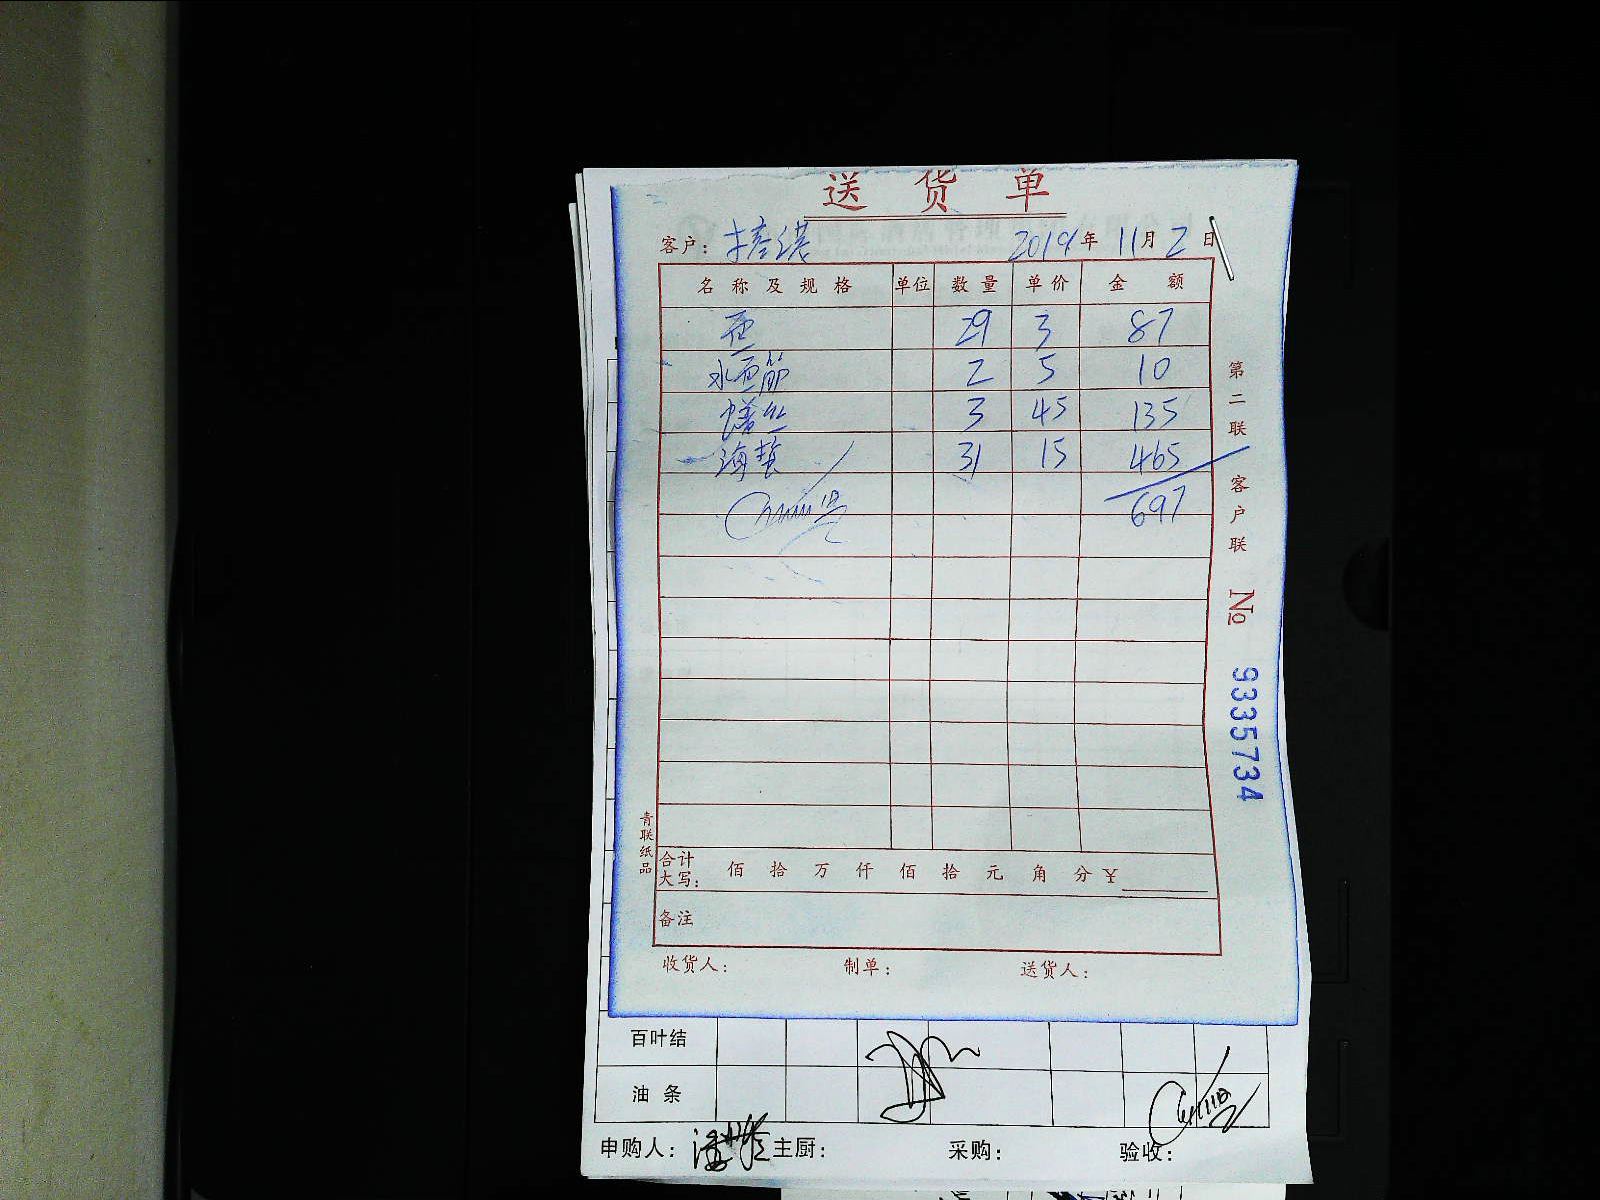 送货单
客户: 2019年11月2日
名称及规格 单位 数量 单价 金额
29 3 87
水面筋 2 5 10
鳝丝 3 45 135
海蜇 31 15 465
697
合计大写: 佰 拾 万 仟 佰 拾 元 角 分 ¥
备注
收货人: 制单: 送货人:
第二联 客户联 No 9335734
青联纸品
百叶结
油条
申购人: 主厨: 采购: 验收: